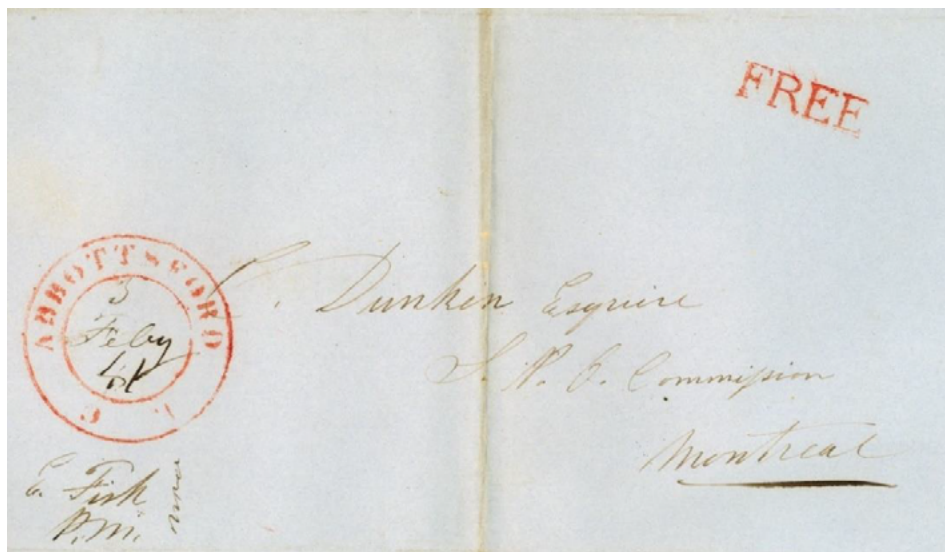 FREE
ABBOTTSFORD
3
Feby
41
L. C
C. Dunken Esquire
S. P. O. Commission
Montreal
E. Fish
P.M.